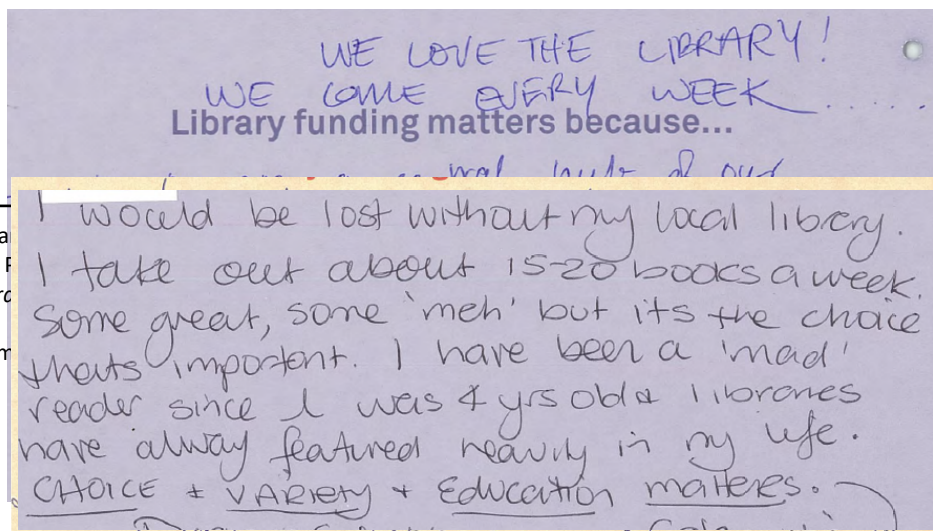 WE LOVE THE LIBRARY!
WE COME EVERY WEEK......
Library funding matters because...
of our
I would be lost without my local library.
I take out about 15-20 books a week.
Some great, some 'meh' but its the choice
thats important. I have been a 'mad'
reader since I was 4 yrs old & libraries
have alway featured heavily in my life.
CHOICE + VARIETY + Education matteres.